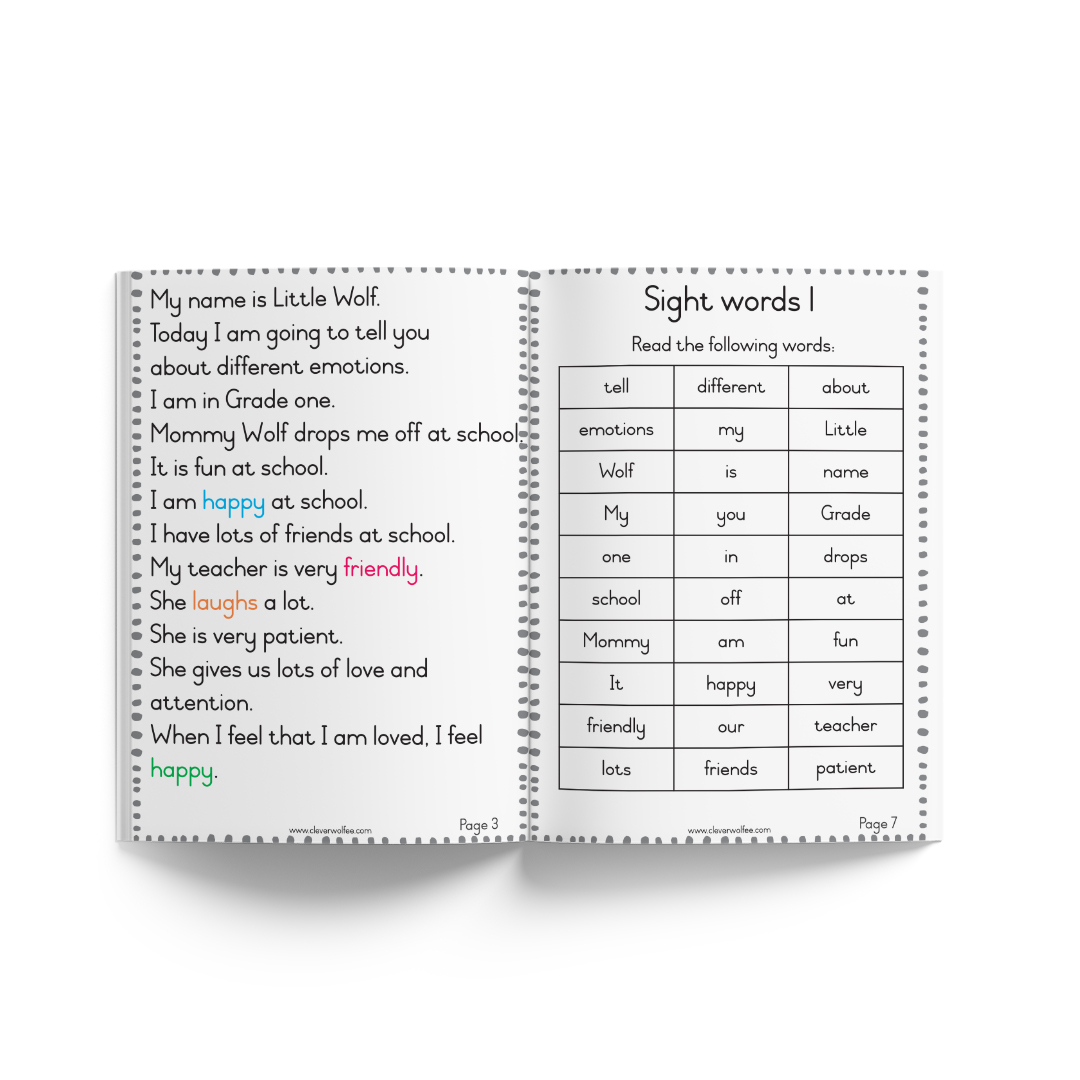 My name is Little Wolf.
Today I am going to tell you
about different emotions.
I am in Grade one.
Mommy Wolf drops me off at school.
It is fun at school.
I am happy at school.
I have lots of friends at school.
My teacher is very friendly.
She laughs a lot.
She is very patient.
She gives us lots of love and
attention.
When I feel that I am loved, I feel
happy.
www.cleverwolfee.com
Page 3
Sight words 1
Read the following words:
tell different about
emotions my Little
Wolf is name
My you Grade
one in drops
school off at
Mommy am fun
It happy very
friendly our teacher
lots friends patient
www.cleverwolfee.com
Page 7